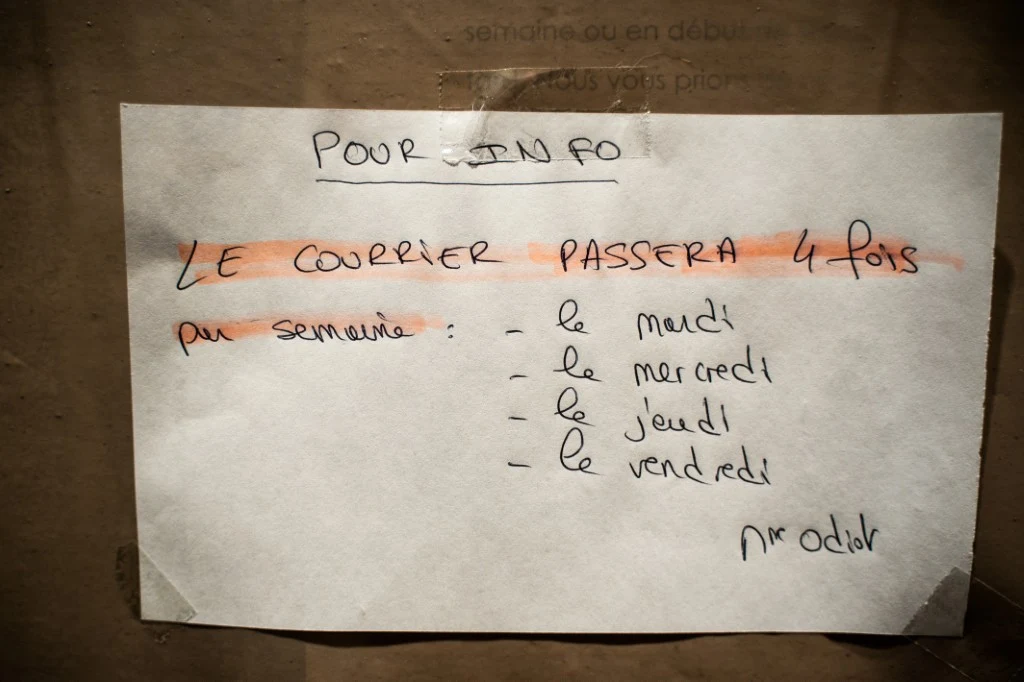 semaine ou en début
Nous vous prions
POUR INFO
LE COURRIER PASSERA 4 fois
par semaine : - le mardi
- le mercredi
- le jeudi
- le vendredi
Mme Odiot